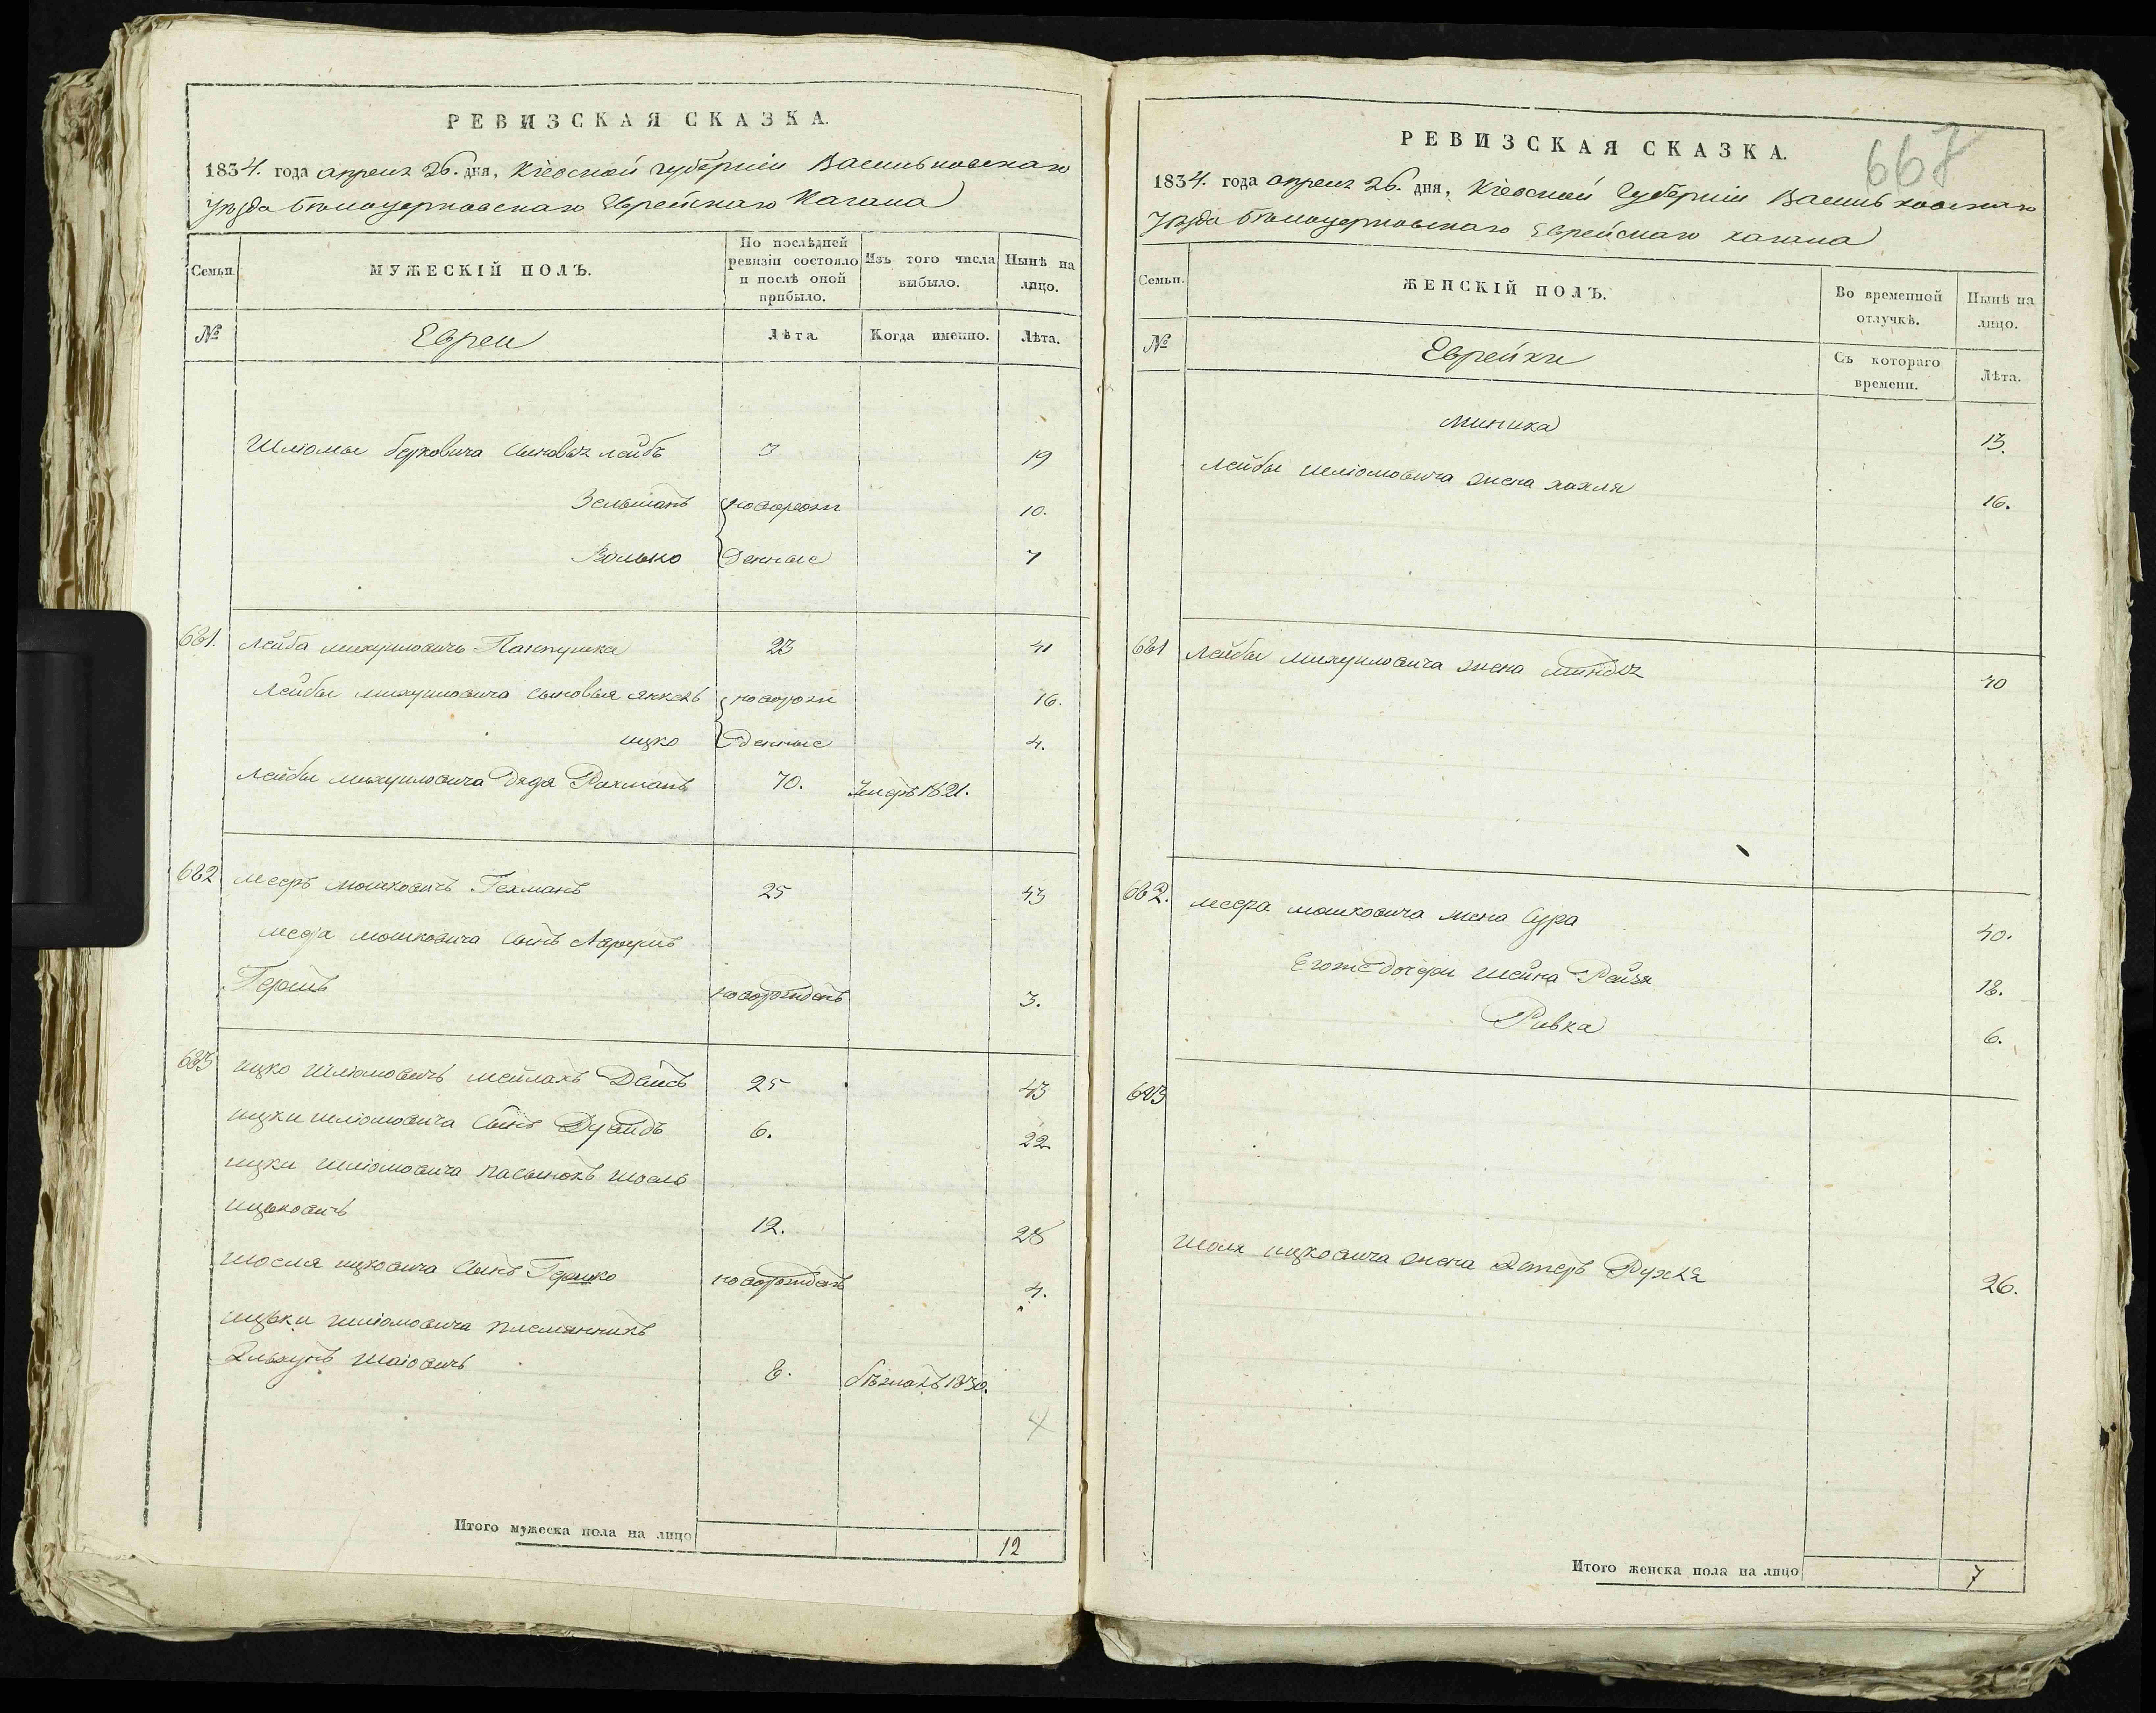 РЕВИЗСКАЯ СКАЗКА.
1834. года апреля 26. дня, Кіевской губерніи Васильковскаго
уезда Белоцерковскаго Еврейскаго Кагала
Семьи.
МУЖЕСКІЙ ПОЛЪ.
По послѣдней ревизіи состояло и послѣ оной прибыло.
Изъ того числа выбыло.
Нынѣ на лицо.
№
Евреи
Лѣта
Когда именно.
Лѣта.
Шліомы Берковича сыновья лейбъ 3 19
Зельманъ новорож 10.
Волько денные 7
681. Лейба михуиловичъ 23 41
Лейбы михуиловича сыновья янкель новорож 16.
ицко денные 4.
Лейбы михуиловича дядя Рахманъ 70. Умеръ 1821.
682 мееръ мошковичъ Гехманъ 25 43
меера мошковича сынъ
Гершъ новорожденъ 3.
683 ицко Шліомовичъ 25 43
ицки шліомовича сынъ Дувидъ 6. 22
ицки шліомовича пасынокъ
ицьковичъ 12. 28
ицковича сынъ Гершко новорожденъ 4.
ицьки шліомовича племянникъ
Шаіовичъ 8. бежалъ 1830.
4
Итого мужеска пола на лицо 12
РЕВИЗСКАЯ СКАЗКА.
667
1834. года апреля 26. дня, Кіевской Губерніи Васильковскаго
уезда Белоцерковскаго Еврейскаго кагала
Семьи.
ЖЕНСКІЙ ПОЛЪ.
Во временной отлучкѣ.
Нынѣ на лицо.
№
Еврейки
Съ котораго времени.
Лѣта.
миника 13.
лейбы шліомовича жена хахля 16.
681 Лейбы михуиловича жена миндля 40
682. меера мошковича жена Сура 40.
Егожъ дочери шейна Рейзя 18.
Ривка 6.
683
ицковича жена Эстеръ Рухля 26.
Итого женска пола на лицо 7